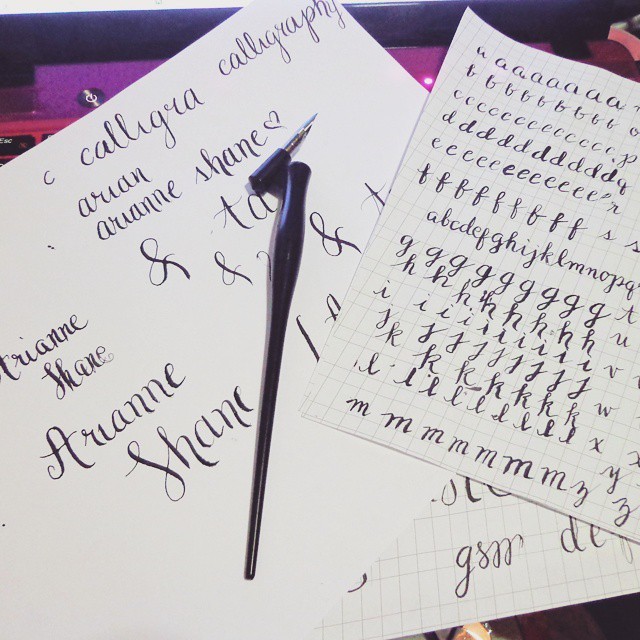 Esc
calligraphy
calligra
c
arian
arianne shane♡
&
&
&
Arianne
Shane
Arianne
Shane
a a a a a a a a
b b b b b b b b
c c c c c c c c c c c
d d d d d d d d d
e e e e e e e e e e e
f f f f f f f f s s
abcdefghijklmnopq
g g g g g g g g g t
h h h h h h h h u
i i i i i i i i i v
j j j j j j j j j
k k k k k k k w
l l l l l l l l l x
m m m m m m m z y
z
gsm def